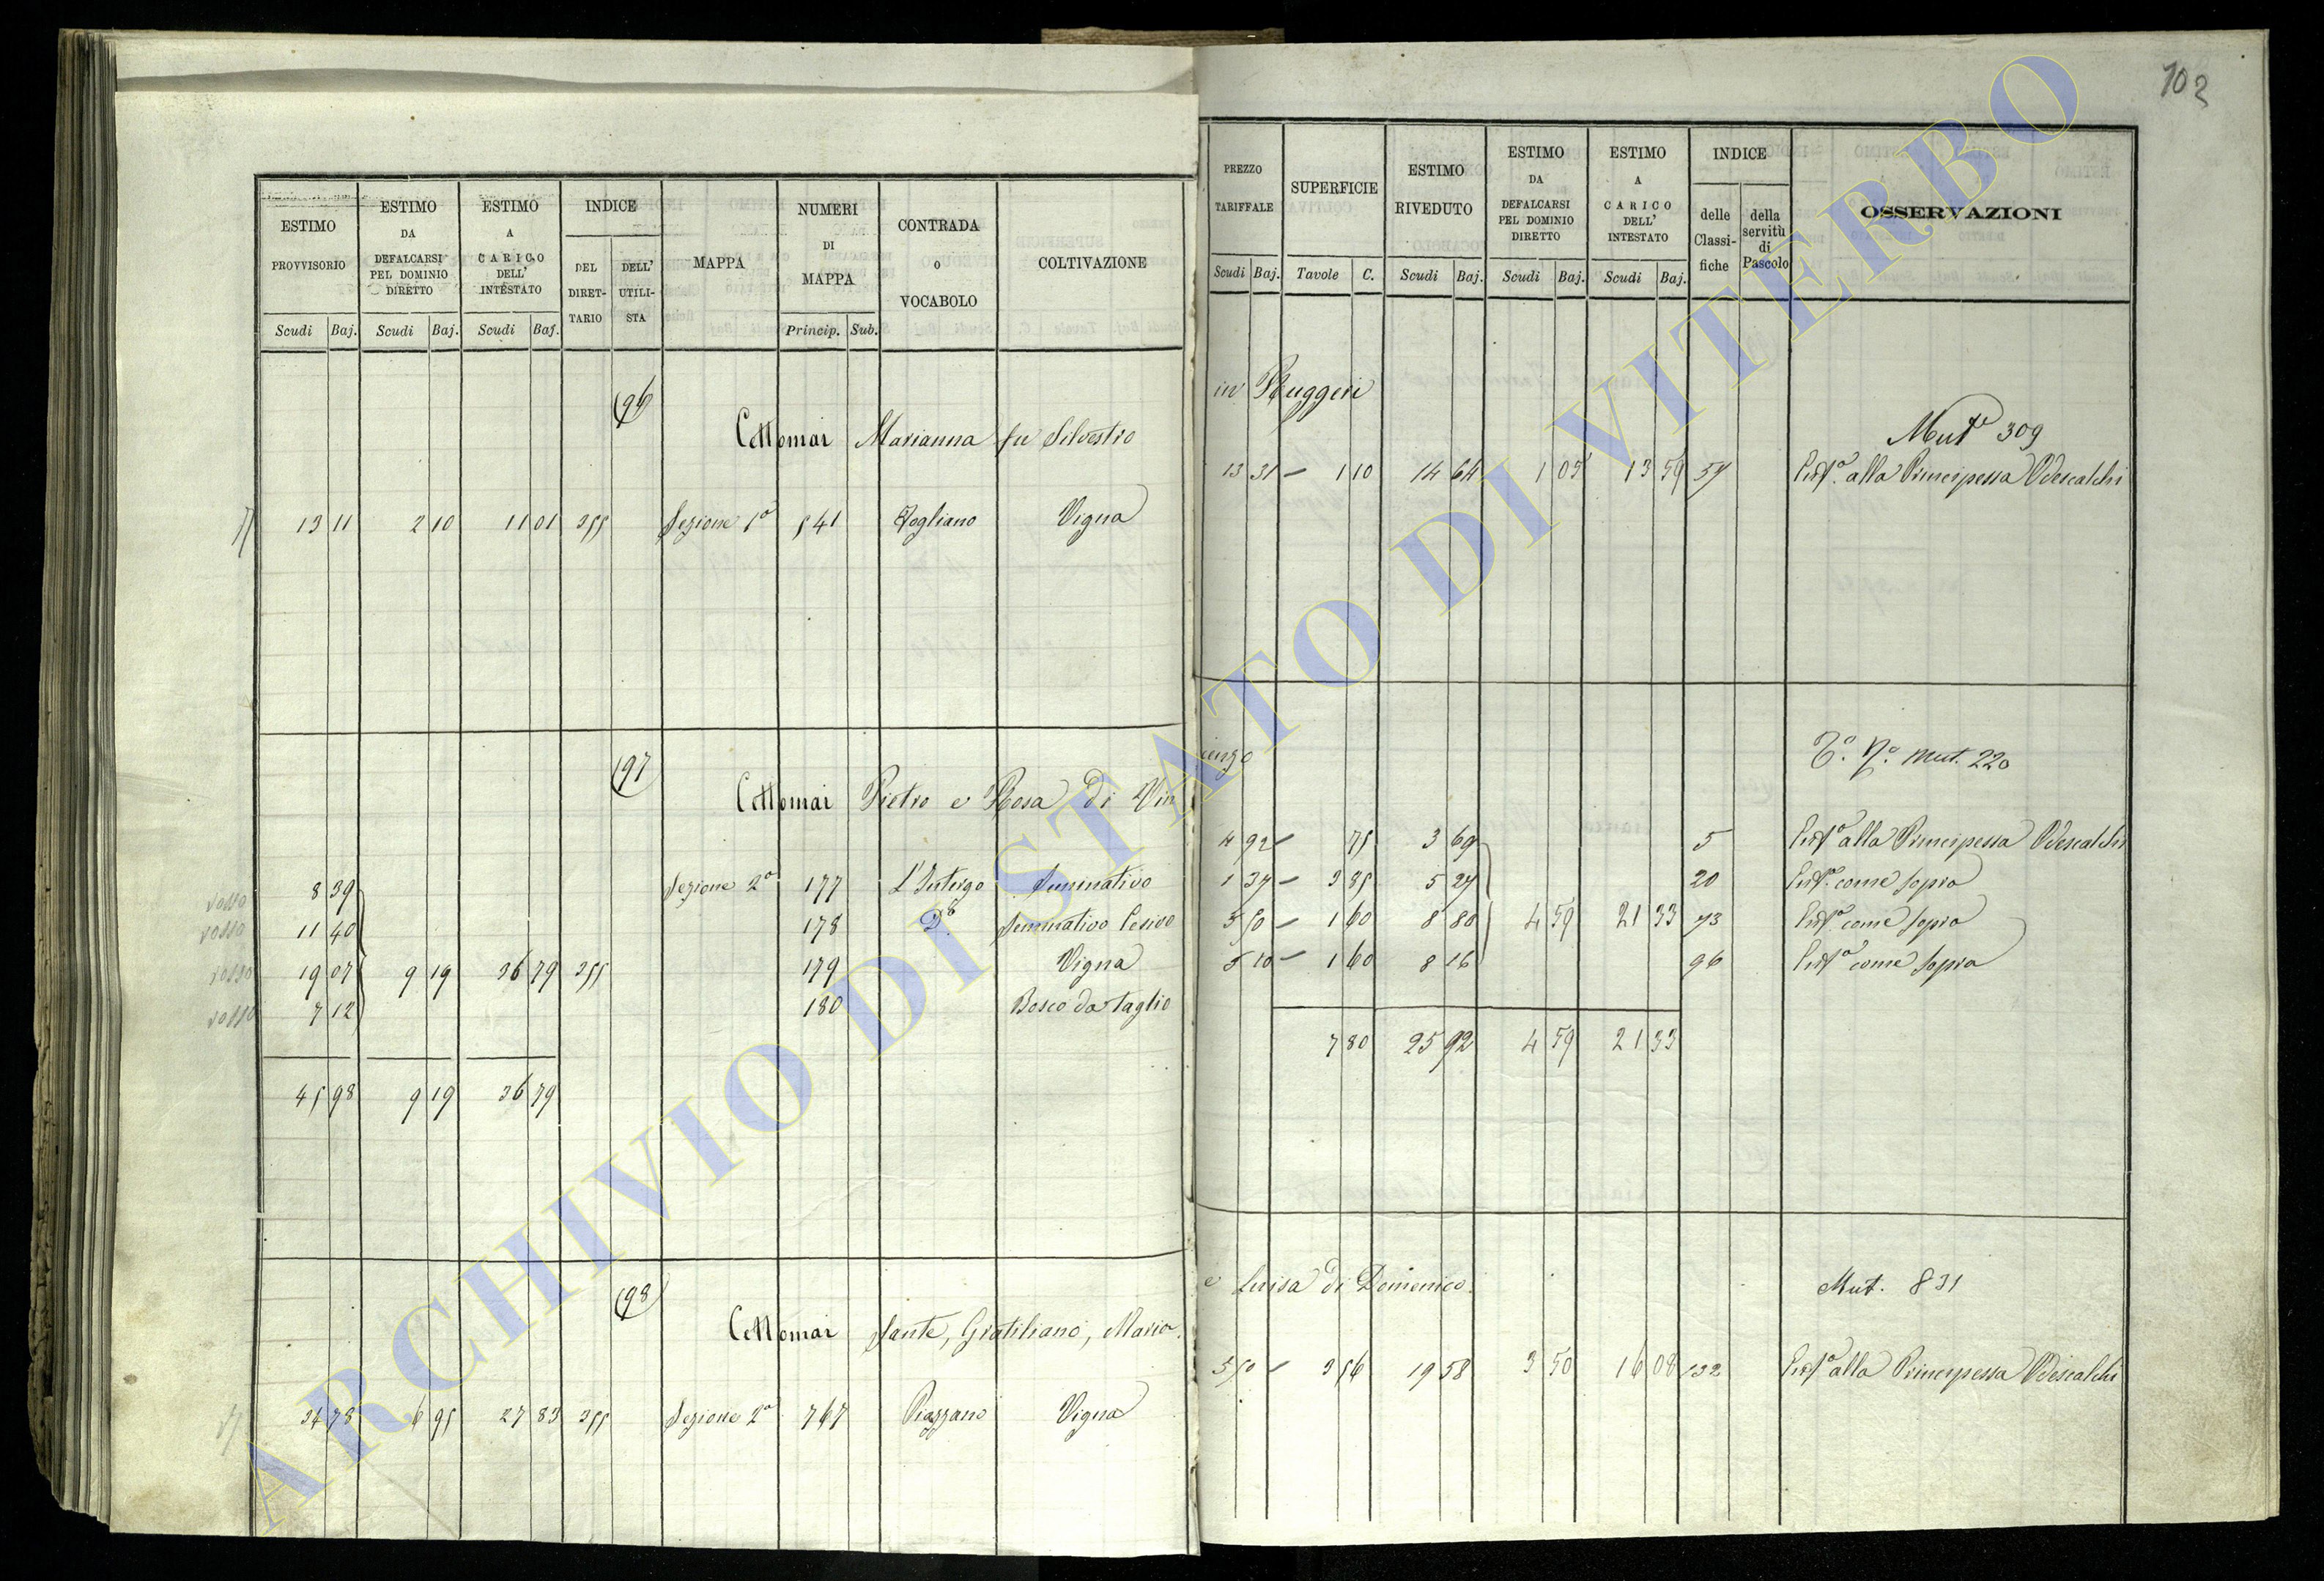 102
ESTIMO PROVVISORIO
ESTIMO DA DEFALCARSI PEL DOMINIO DIRETTO
ESTIMO A CARICO DELL' INTESTATO
INDICE
DEL DIRETTARIO
DELL' UTILISTA
MAPPA
NUMERI DI MAPPA
CONTRADA O VOCABOLO
COLTIVAZIONE
Scudi Baj. Scudi Baj. Scudi Baj. Princip. Sub.
PREZZO TARIFFALE
SUPERFICIE
ESTIMO RIVEDUTO
ESTIMO DA DEFALCARSI PEL DOMINIO DIRETTO
ESTIMO A CARICO DELL' INTESTATO
INDICE
delle Classifiche
della servitù di Pascolo
OSSERVAZIONI
Scudi Baj. Tavole C. Scudi Baj. Scudi Baj. Scudi Baj.
96
Cettomai Marianna fu Silvestro in Ruggeri
Mut.e 309
13 11 2 10 11 01 355 Sezione 1a 541 Vogliano Vigna
13 31 – 1 10 14 64 1 05 13 59 59 alla Principessa Odescalchi
97
Cettomai Pietro e Rosa di Vincenzo
Mut. 220
rosso 8 39 Sezione 2a 177 Seminativo
4 92 – 75 3 69 5 alla Principessa Odescalchi
rosso 11 40 178 Do Seminativo
1 37 – 3 85 5 27 20 come sopra
rosso 19 07 9 19 36 79 355 179 Vigna
5 50 – 1 60 8 80 4 59 21 33 73 come sopra
rosso 7 12 180 Bosco da taglio
5 10 – 1 60 8 16 96 come sopra
45 98 9 19 36 79
7 80 25 92 4 59 21 33
98
Cettomai Sante, Gratiliano, Maria e Luisa di Domenico
Mut. 831
34 78 6 95 27 83 355 Sezione 2a 767 Piazzano Vigna
5 50 – 3 56 19 58 3 50 16 08 132 alla Principessa Odescalchi
ARCHIVIO DI STATO DI VITERBO